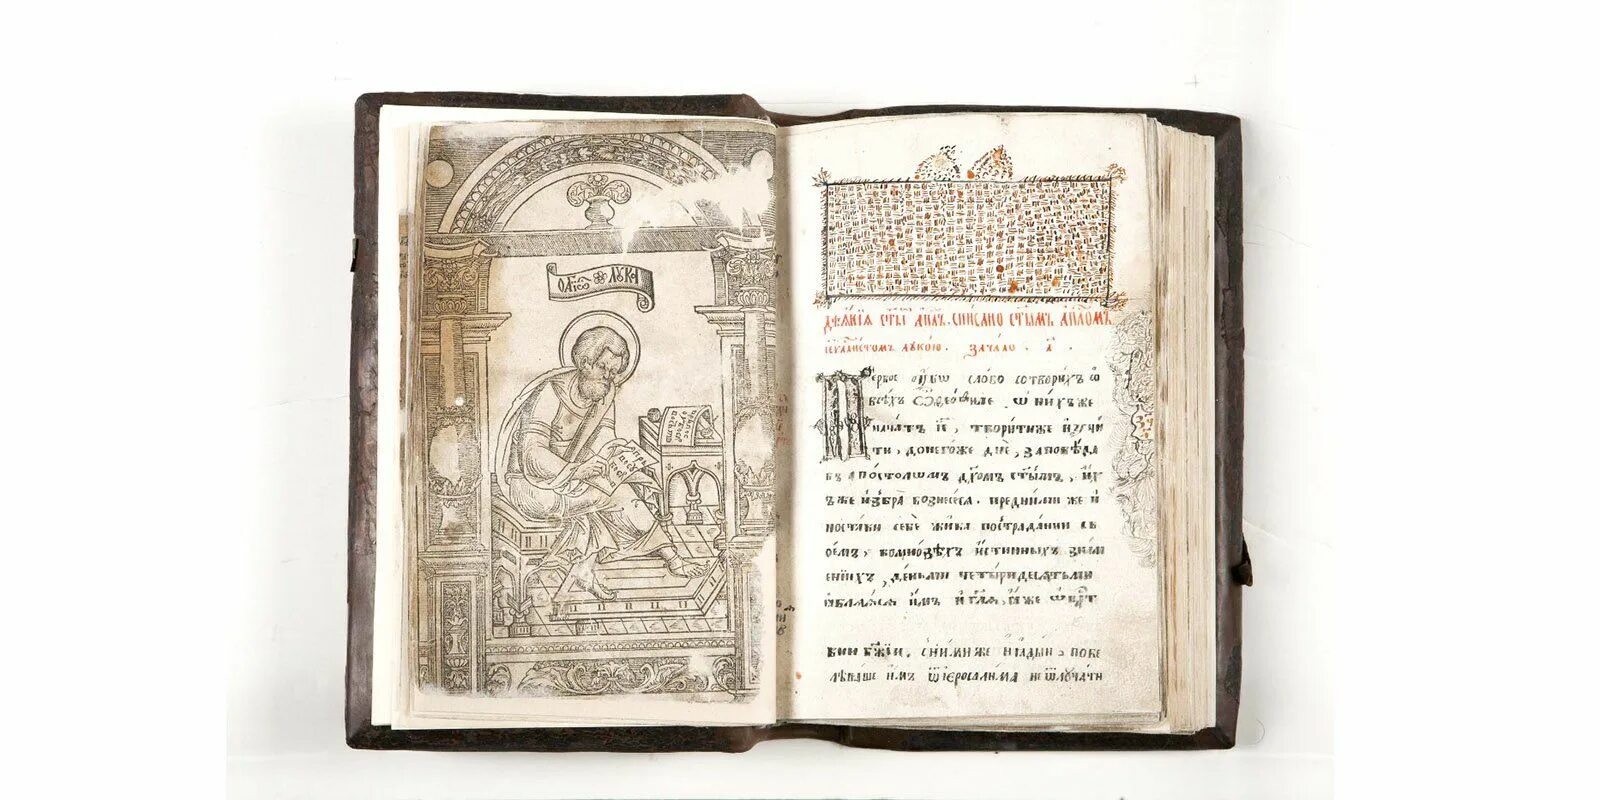 ОАГІОС ЛУКА
дѣꙗнїѧ ст҃ы апл҃ъ. списано ст҃ымъ апл҃омъ
і еѵⷢ҇листомъ лꙋкою. зачало. а҃.
Первое ꙋбо слово сотворихъ ѡ
всѣхъ ѽ ѳеоѳиле ѡ нихъже
начатъ іс҃, творитиже и ꙋчи
ти, донегоже дн҃е, заповѣда
въ апостолѡмъ дх҃омъ ст҃ымъ, и
хъже избра вознесеса. предними же и
постави себе жива пострадании св
оемъ, вомнозѣхъ истинныхъ знам
енїихъ, деньми четыридесѧтьми
ꙗвлѧѧсѧ имъ и гл҃ѧ, ꙗже ѡ цр҃т
вии бж҃їи. снимиже и ꙗдый, пове
лѣваше имъ ѿ іеросалима неѿлꙋчати